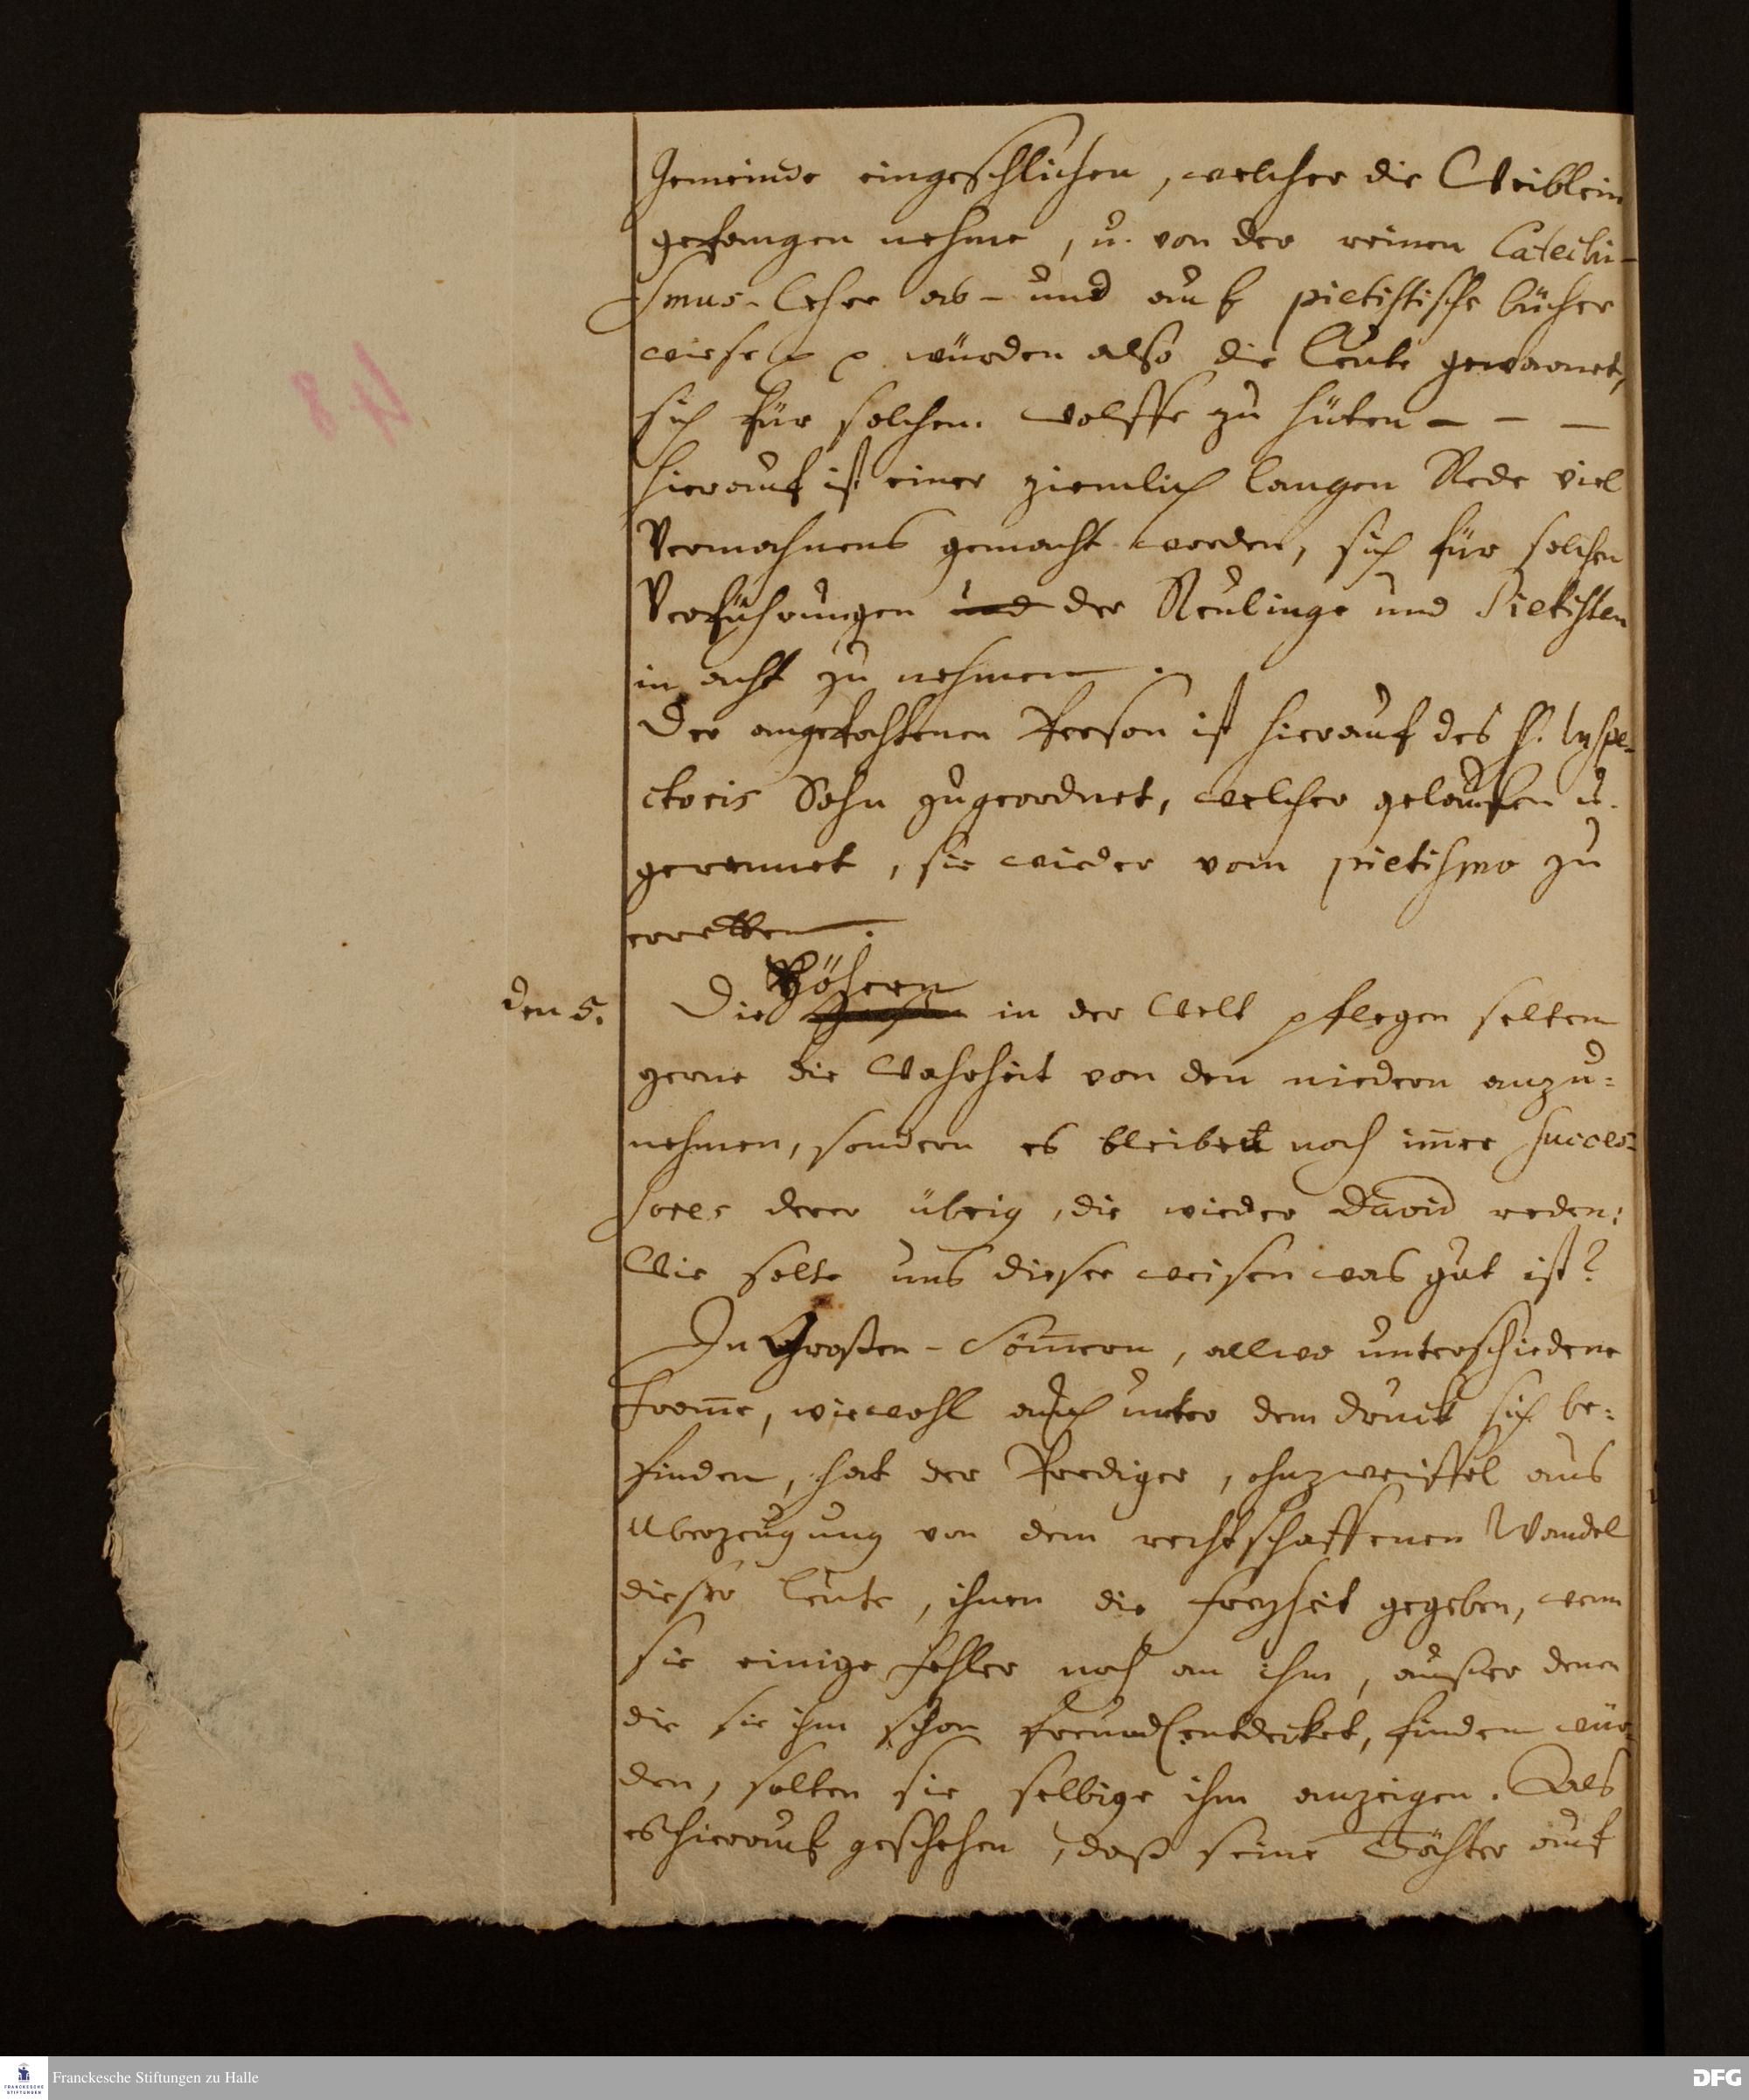 Gemeinde eingeschlichen, welcher die Weiblein
gefangen nehme, u. von der reinen Catechi-
smus-Lehre ab- und auf pietistische bücher
weise p p. würden also die Leute gewarnet,
sich für solchen Wolffe zu hüten - - -
Hierauf ist einer ziemlich langen Rede viel
Vermahnens gemacht worden, sich für solchen
Verführungen und der Neulinge und Pietisten
in acht zu nehmen.
Der angefochtenen Person ist hierauf des H. Inspe-
ctoris Sohn zugeordnet, welcher gelauffen u.
gerennet, sie wieder vom pietismo zu
erretten.
den 5.
Die Höhern in der Welt pflegen selten
gerne die Wahrheit von den niedern anzu-
nehmen, sondern es bleibet noch im̄er succes-
sores derer übrig, die wieder David reden:
Wie solte uns dieser weisen was gut ist?
In Großen-Söm̄ern, allwo unterschiedene
From̄e, wiewohl auch unter dem druck sich be-
finden, hat der Prediger, ohnzweiffel aus
Uberzeugung von dem rechtschaffenen Wandel
dieser Leute, ihnen die Freyheit gegeben, wenn
sie einige Fehler noch an ihm, außer denen
die sie ihm schon freundl. entdecket, finden wür-
den, solten sie selbige ihm anzeigen. Als
es hierauf geschehen, daß seine Töchter auf
48
Franckesche Stiftungen zu Halle
FRANCKESCHE STIFTUNGEN
DFG